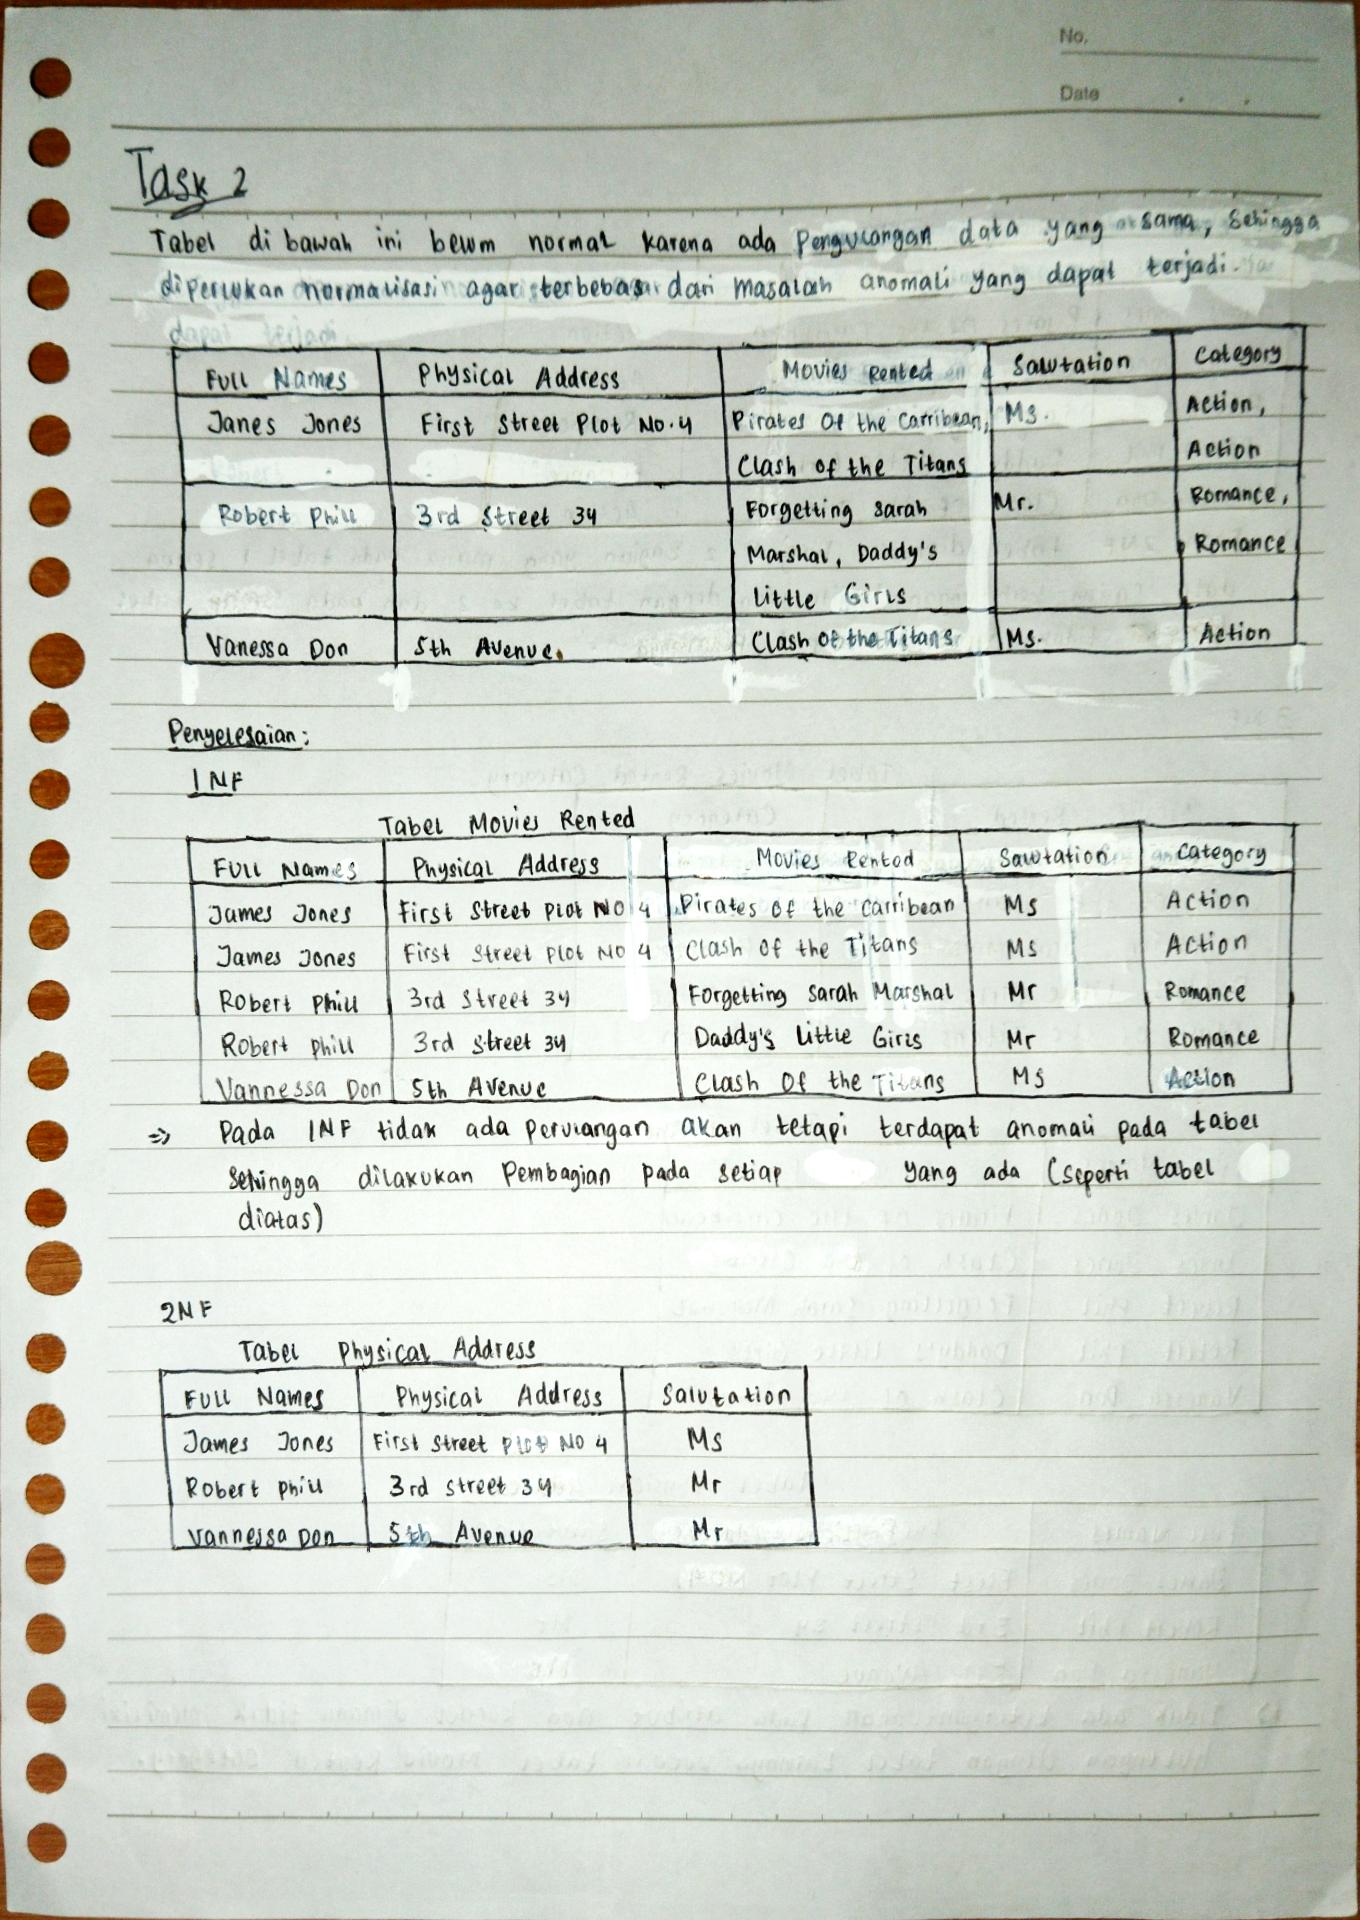 No.
Date
Task 2
Tabel di bawah ini belum normal karena ada Pengulangan data yang sama, Sehingga
diperlukan normalisasi agar terbebas dari masalah anomali yang dapat terjadi.
dapat terjadi
Full Names Physical Address Movies Rented Salutation Category
Janes Jones First Street Plot No.4 Pirates Of the Carribean, Ms. Action,
Clash of the Titans Action
Robert Phill 3rd Street 34 Forgetting Sarah Mr. Romance,
Marshal, Daddy's Romance
Little Girls
Vanessa Don 5th Avenue. Clash Of the Titans Ms. Action
Penyelesaian:
1NF
Tabel Movies Rented
Full Names Physical Address Movies Rented Salutation Category
James Jones First Street Plot NO 4 Pirates Of the Carribean Ms Action
James Jones First Street Plot NO 4 Clash Of the Titans Ms Action
Robert Phill 3rd Street 34 Forgetting Sarah Marshal Mr Romance
Robert Phill 3rd Street 34 Daddy's Little Girls Mr Romance
Vannessa Don 5th Avenue Clash Of the Titans Ms Action
=> Pada 1NF tidak ada perulangan akan tetapi terdapat anomali pada tabel
Sehingga dilakukan Pembagian pada setiap yang ada (seperti tabel
diatas)
2NF
Tabel Physical Address
Full Names Physical Address Salutation
James Jones First Street Plot NO 4 Ms
Robert Phill 3rd street 34 Mr
Vannessa Don 5th Avenue Mr